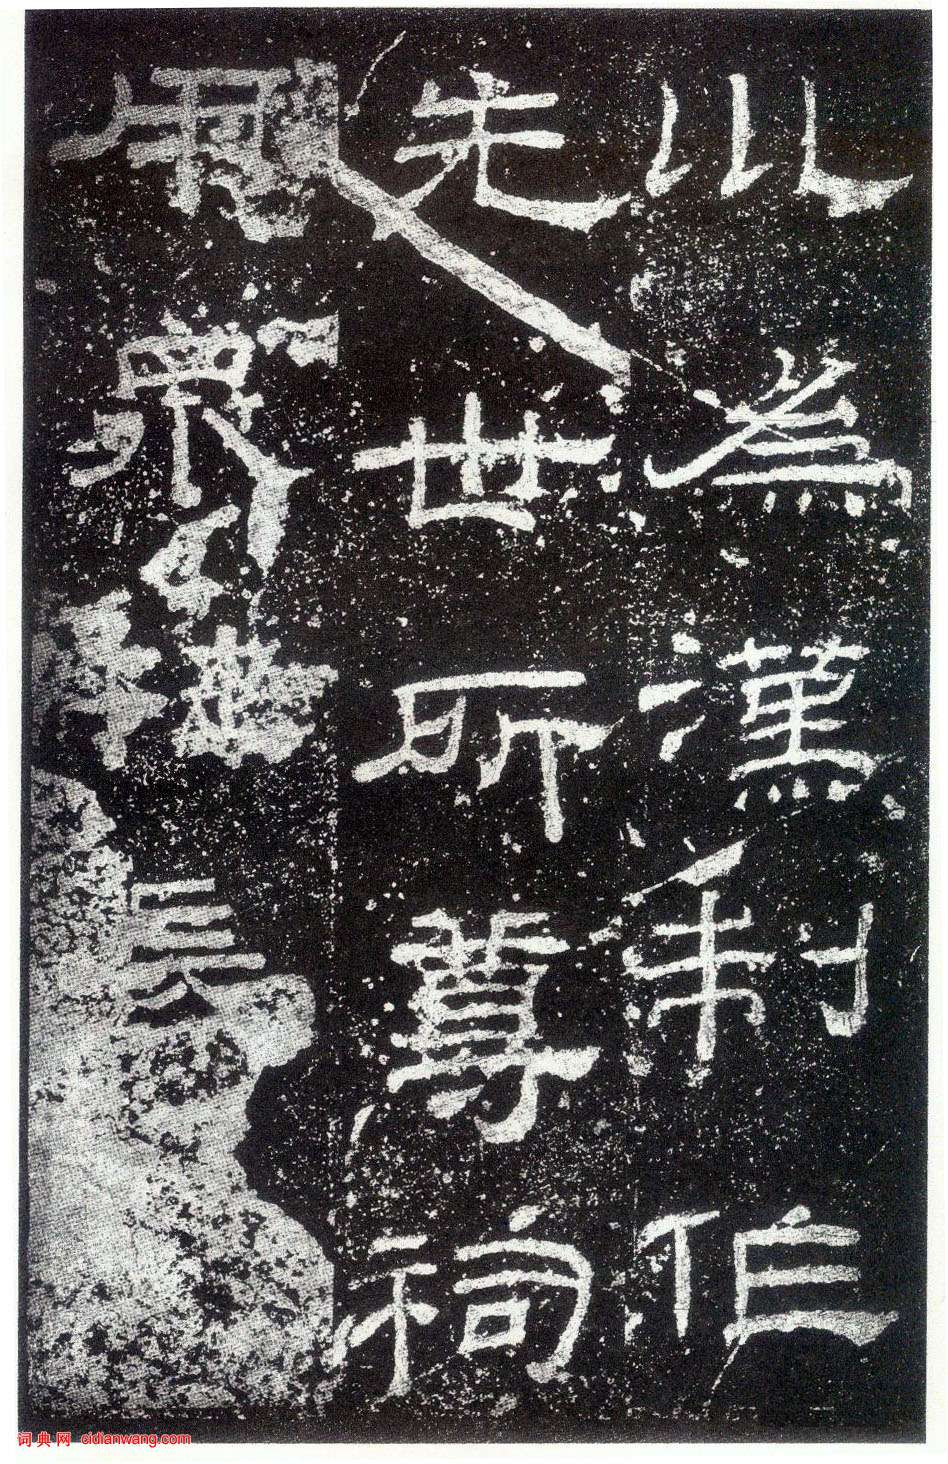 川為漢制作
先世所尊祠
用眾牲長
词典网 cidianwang.com